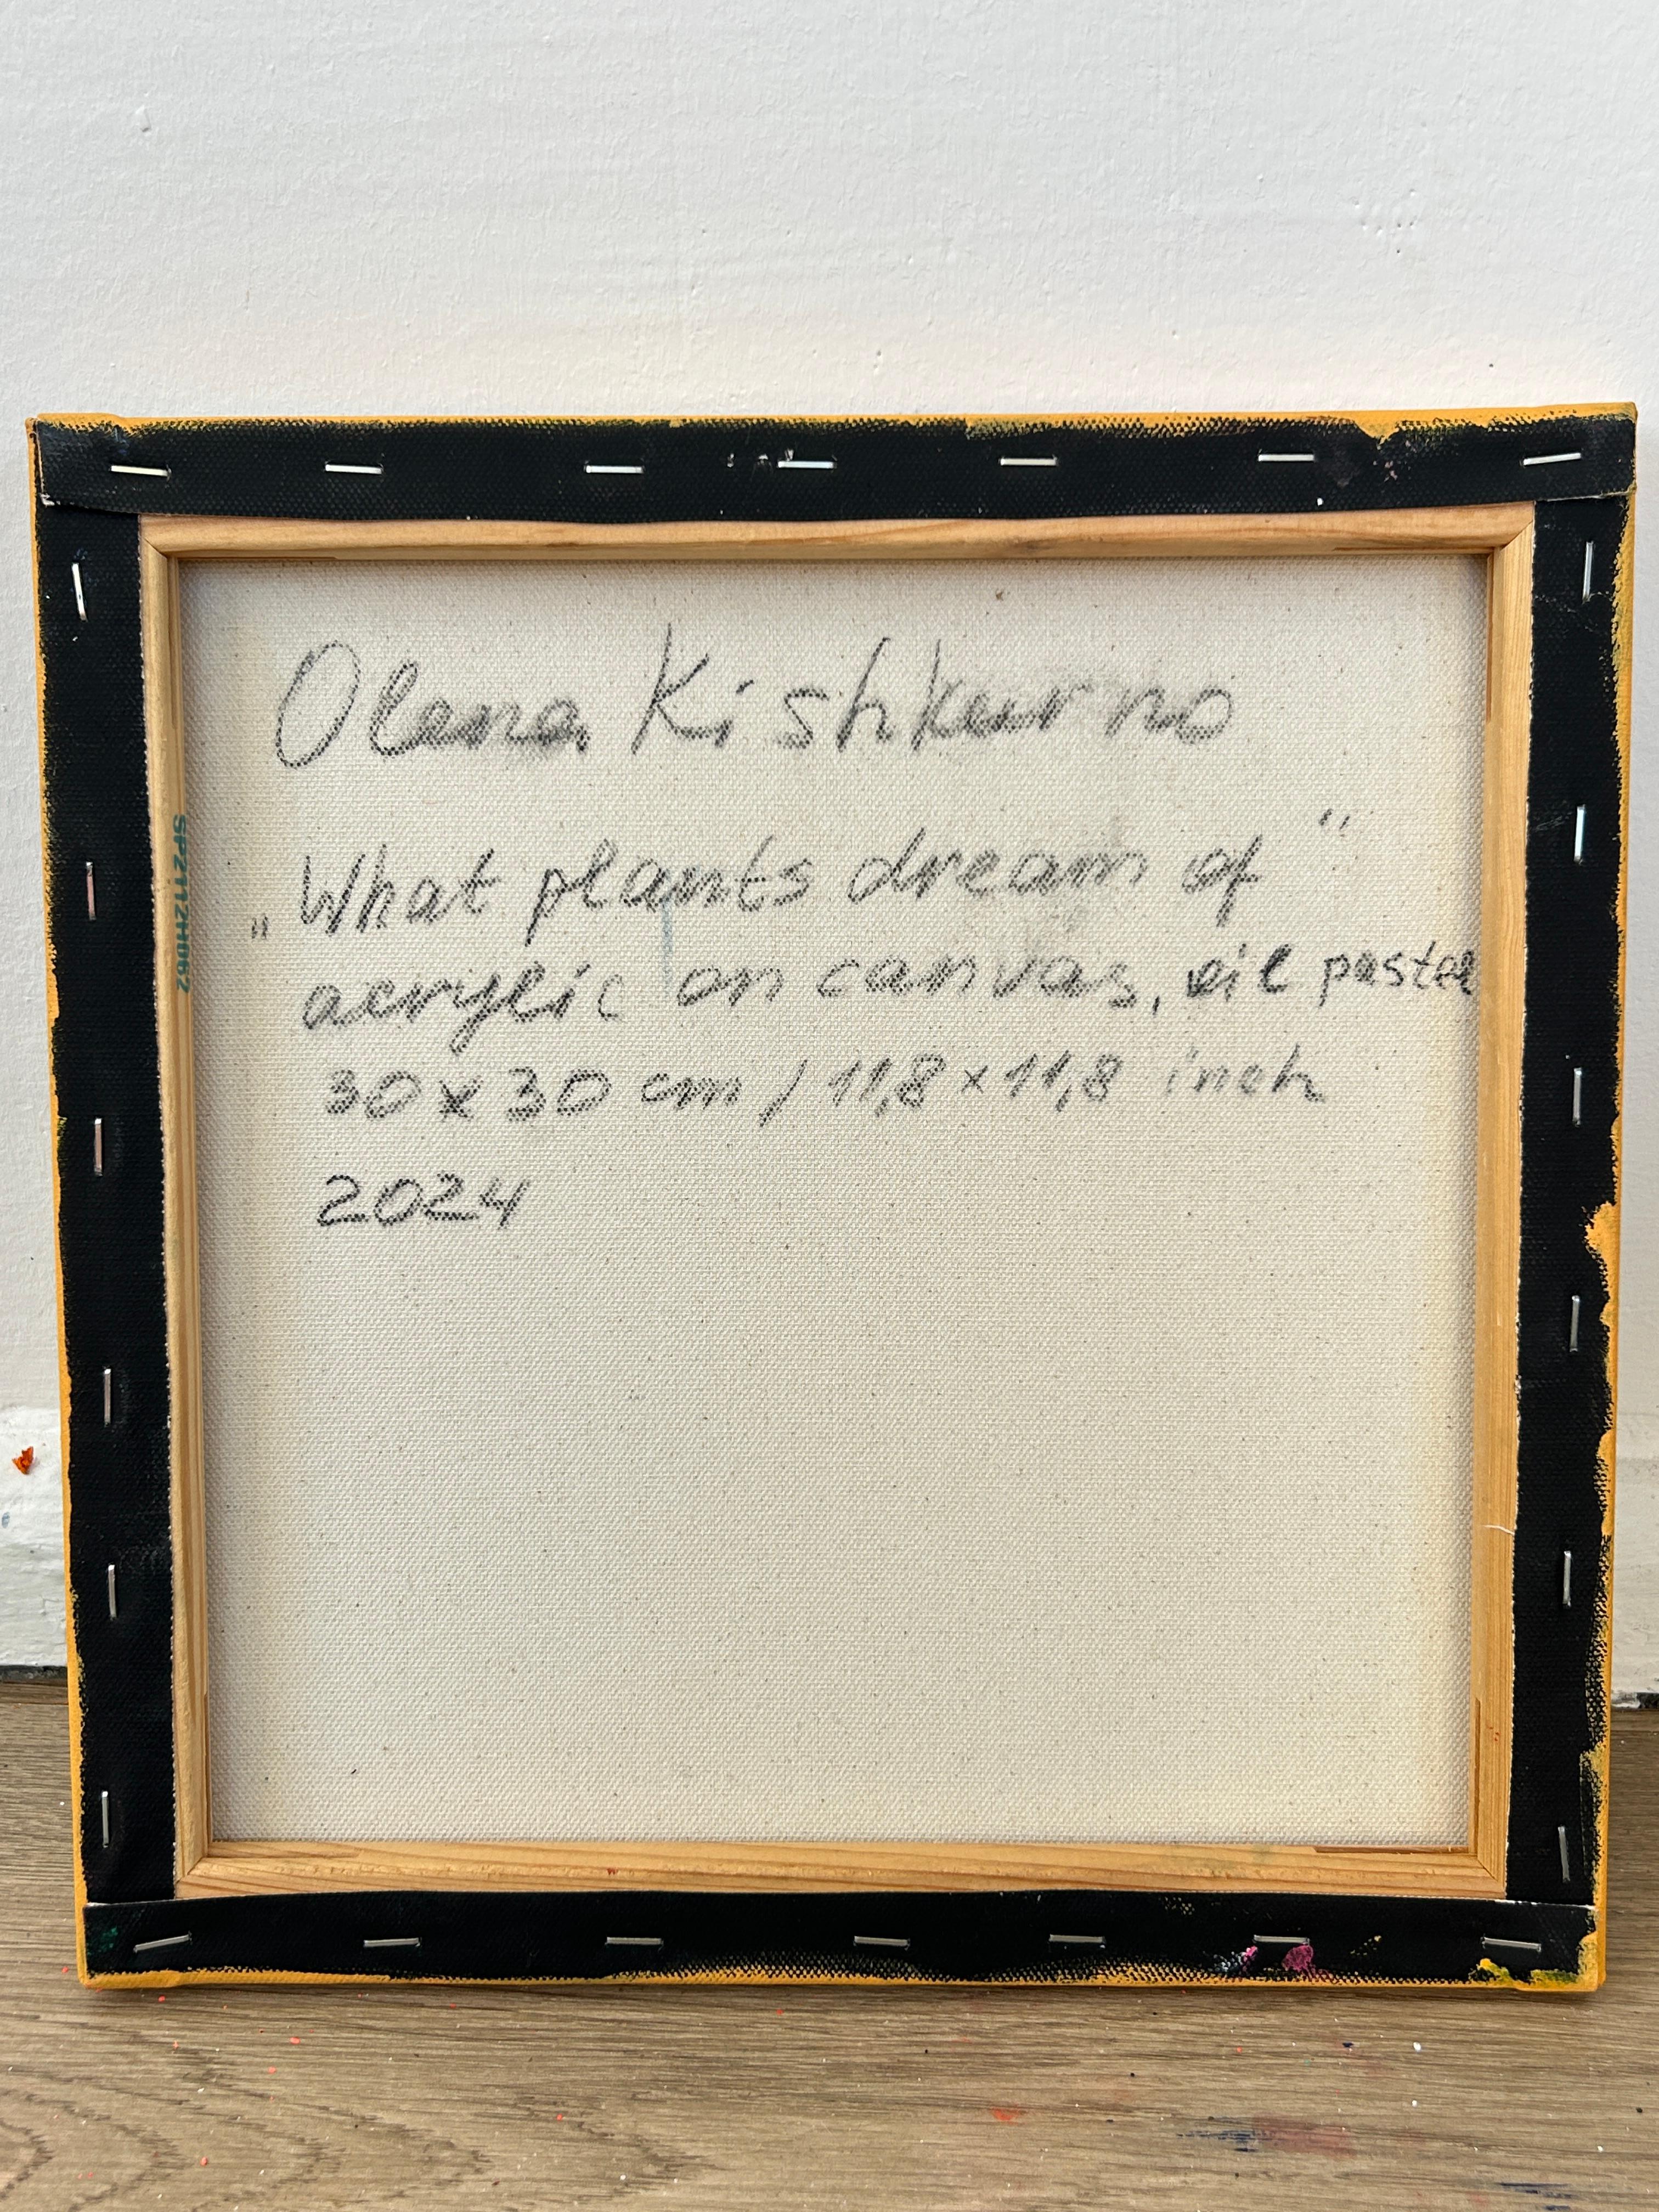 Olena Kishkurno
„What plants dream of"
acrylic on canvas, oil pastel
30 x 30 cm / 11,8 x 11,8 inch
2024
SP2112H062